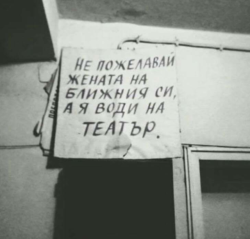 НЕ ПОЖЕЛАВАЙ
ЖЕНАТА НА
БЛИЖНИЯ СИ,
А Я ВОДИ НА
ТЕАТЪР.